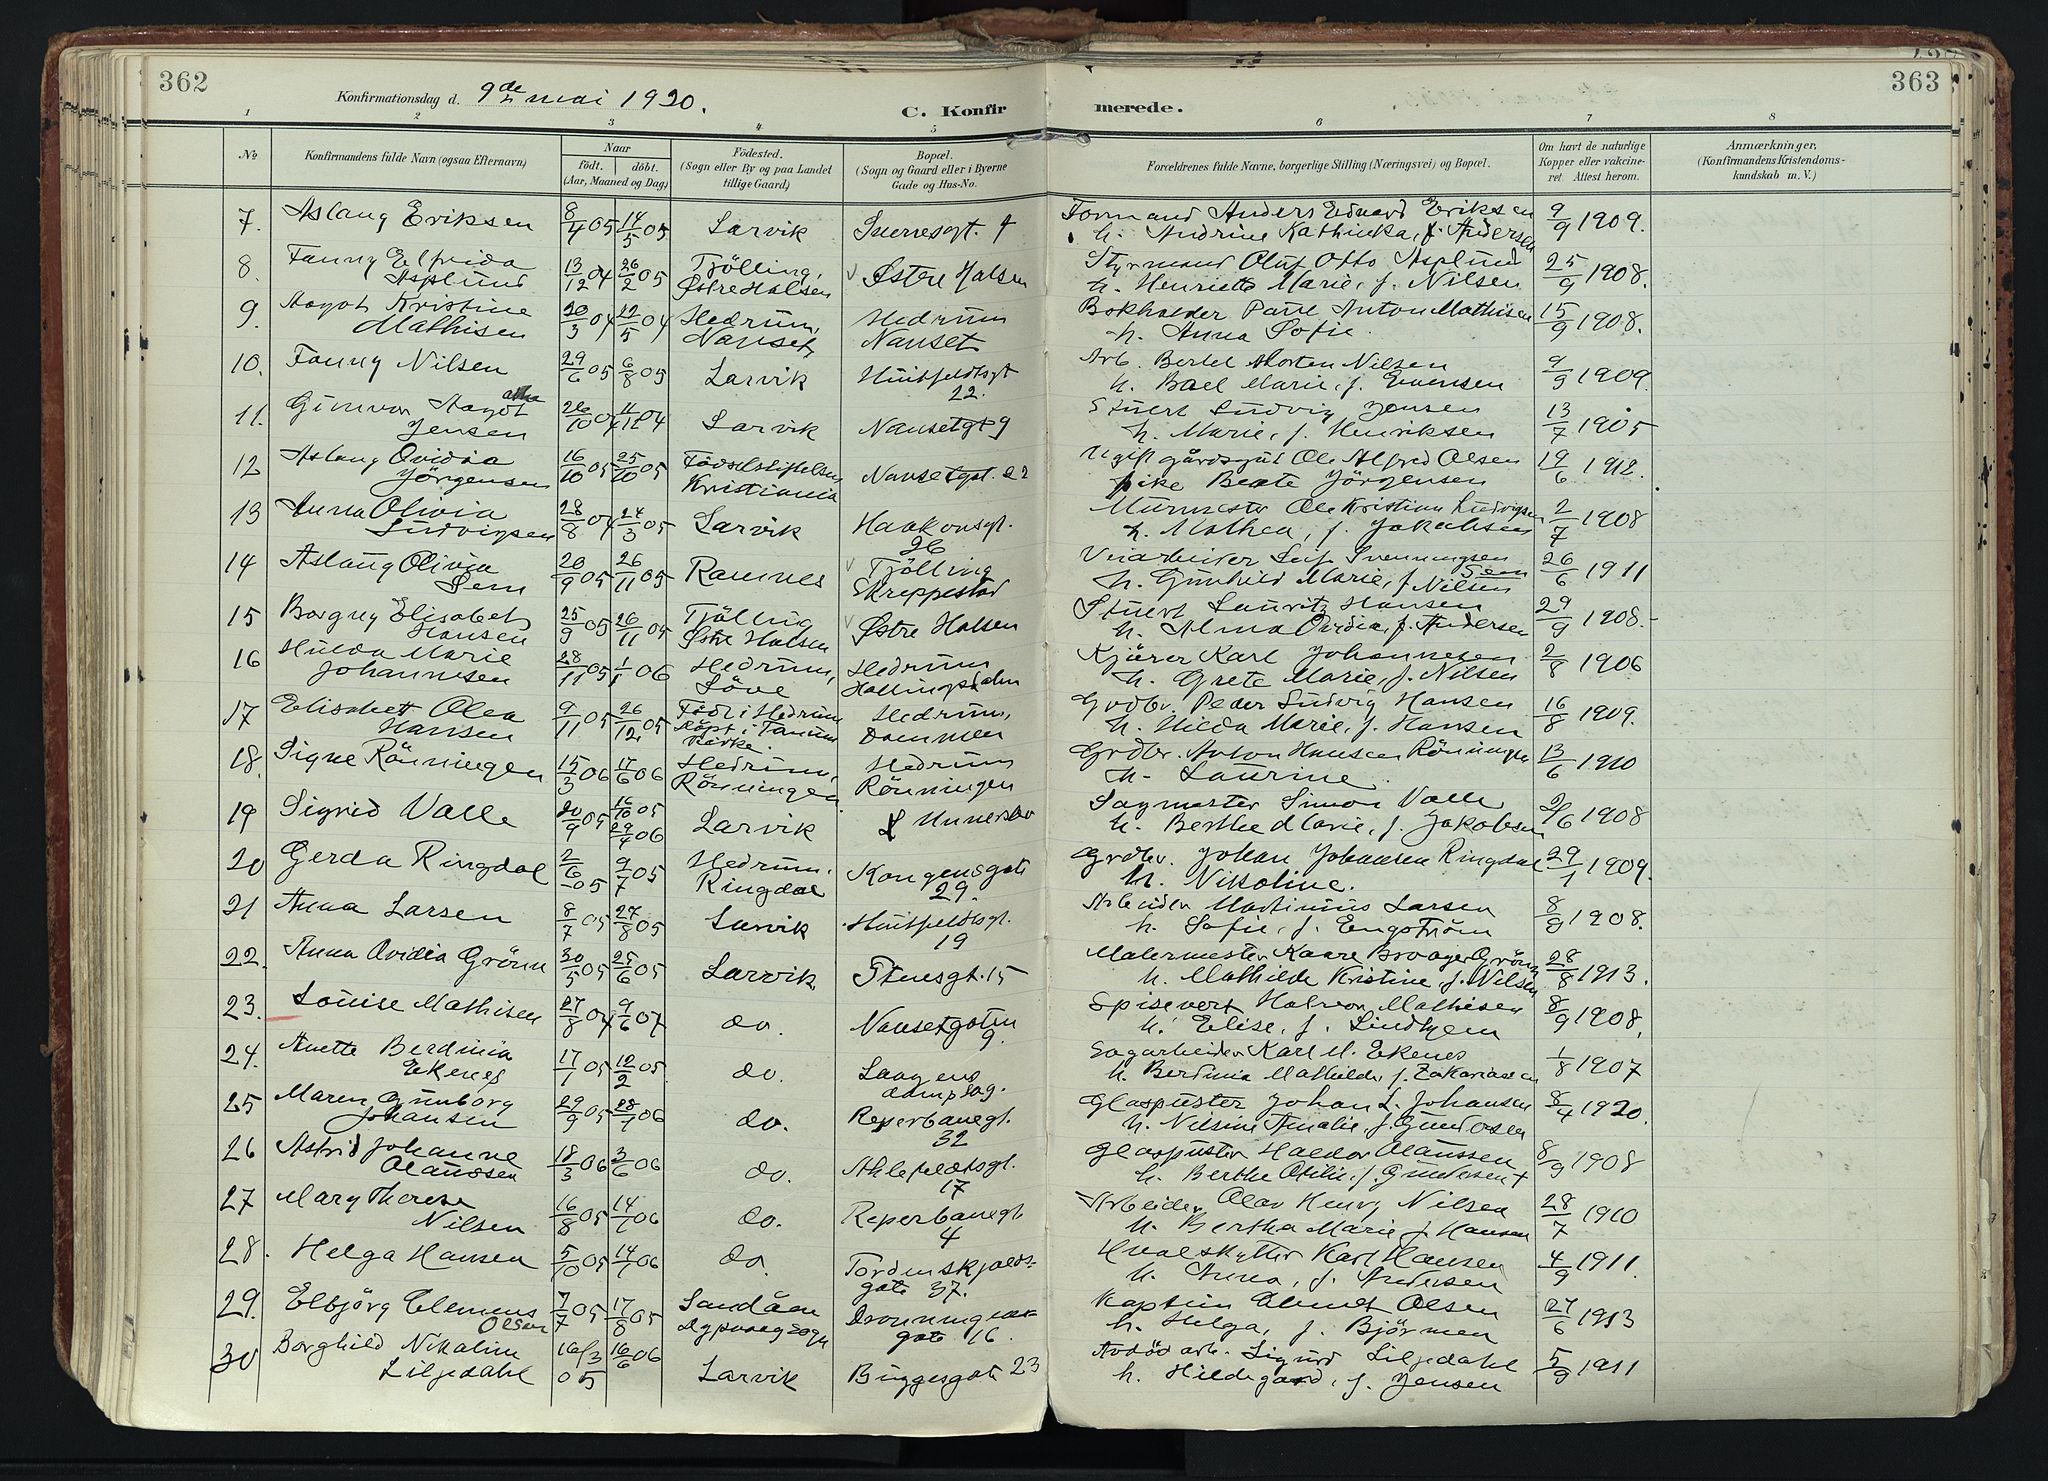 362
363
Konfirmationsdag d. 9de mai 1920.
C. Konfirmerede.
1 2 3 4 5 6 7 8
No
Konfirmandens fulde Navn (ogsaa Efternavn)
Naar
födt. döbt.
(Aar, Maaned og Dag)
Födested.
(Sogn eller By og paa Landet
tillige Gaard)
Bopæl.
(Sogn og Gaard eller i Byerne
Gade og Hus-No.
Forældrenes fulde Navne, borgerlige Stilling (Næringsvei) og Bopæl.
Om havt de naturlige
Kopper eller vakcine-
ret. Attest herom.
Anmærkninger,
(Konfirmandens Kristendoms-
kundskab m. V.)
7. Aslaug Eriksen 8/4 05 14/5 05 Larvik Sverresgt. Formand Anders Edvard Eriksen 9/9 1909.
h. Andrine Kathinka, f. Andersen
8. Fanny Elfrida 13/12 04 26/2 05 Tjölling, Østre Halsen Styrmand Oluf Otto Asplund 25/9 1908.
Asplund Østre Halsen h. Henriette Marie, f. Nilsen
9. Aagot Kristine 20/3 04 22/5 04 Hedrum, Hedrum Bokholder Paul Anton Mathisen 15/9 1908.
Mathisen Nanset Nanset h. Anna Sofie.
10. Fanny Nilsen 29/6 05 6/8 05 Larvik Huitfeldtsgt Arb. Bertel Morten Nilsen 9/9 1909.
22. h. Marie, f. Evensen
11. Gunvor Aagot 26/10 04 Larvik Nansetgt 9 Stuert Ludvig Jensen 13/7 1905
Jensen h. Marie, f. Henriksen
12 Aslaug Ovidia 16/10 05 25/10 05 Födselsstiftelsen Nansetgt. 22 Ugift gårdsgut Ole Alfred Olsen 19/6 1912.
Jörgensen Kristiania pike Beate Jörgensen
13 Anna Olivia 28/8 04 24/3 05 Larvik Haakonsgt. Murmester Ole Kristian Ludvigsen 2/7 1908
Ludvigsen 26 h. Mathea, f. Jakobsen
14 Aslaug Olivia 20/9 05 26/11 05 Ramnes Tjölling Leif Svenningsen 26/6 1911
Sem Skreppestad Sem
h. Gunhild Marie, f. Nilsen
15 Borgny Elisabet 25/9 05 26/11 05 Tjölling Østre Halsen Stuert Lauritz Hansen 29/9 1908.
Hansen Østre Halsen h. Alma Ovidia, f. Andersen
16 Hulda Marie 28/11 05 1/1 06 Hedrum, Hedrum Kjörer Karl Johannesen 2/8 1906
Johannesen Löve h. Grete Marie, f. Nilsen
17 Elisabett Olea 9/11 05 26/12 05 Född i Hedrum Hedrum, Grdbr. Peder Ludvig Hansen 16/8 1909.
Hansen döpt i Tanum Dammen h. Hilda Marie, f. Hansen
kirke.
18. Signe Rönningen 15/3 06 17/6 06 Hedrum, Hedrum Grdbr. Anton Hansen Rönningen 13/6 1910
Rönningen Rönningen h. Laurine
19 Sigrid Valle 20/9 05 16/10 05 Larvik Sagmester Simon Valle 1908
29/4 06 h. Berthe Marie, f. Jakobsen
20 Gerda Ringdal 2/6 05 9/7 05 Hedrum, Kongensgate Grdbr. Johan Johansen Ringdal 29/1 1909.
Ringdal 29. h. Nikoline.
21 Anna Larsen 8/7 05 27/8 05 Larvik Huitfeldtsgt. Arbeider Martinius Larsen 8/9 1908.
19 h. Sofie, f. Engström
22. Anna Ovidia Grönn 30/5 05 25/6 05 Larvik Stensgt. 15 Malermester Kaare Grönn 28/8 1913.
h. Mathilde Kristine f. Nilsen
23. Louise Mathisen 27/8 04 9/6 07 do. Nansetgaten Spisevert Halvor Mathisen 8/9 1908,
9. h. Elise, f. Lindhjem
24. Anette Berdinia 17/1 05 12/2 05. do. Laagens Sagarbeider Karl M. Ekenes 1/8 1907
Ekenes dampsag. h. Berdinia Mathilde, f. Zakariassen
25 Maren Gunborg 29/9 05 28/1 06 do. Reperbanegt. Glaspuster Johan L. Johansen 8/4 1920.
Johansen 32 h. Nilsine Amalie, f. Gundersen
26 Astrid Johanne 18/3 06 3/6 06 do. Ahlefeldtsgt. Glaspuster Haldor Olaussen 8/9 1908
Olaussen 17 h. Berthe Otilie, f. Gundersen +
27 Mary Therese 16/8 05 14/1 06 do. Reperbanegt Arbeider Olav Henry Nilsen 28/7 1910
Nilsen 4 h. Bertha Marie f. Hansen
28. Helga Hansen 5/10 05 14/1 06 do. Tordenskjolds- Hvalskytter Karl Hansen 4/9 1911.
gate 37. h. Anna, f. Andersen
29. Elbjörg Clemens 7/7 05 17/8 05 Sandöen Dronningens- Kaptein Olsen 27/6 1913
Olsen Dypvaag sogn gate 16. h. Helga, f. Björnnen
30 Borghild Nikoline 16/3 05 16/6 06 Larvik Buggesgate 23 Avdöd arb. Sigurd Liljedahl 5/9 1911
Liljedahl h. Hildegard, f. Jensen